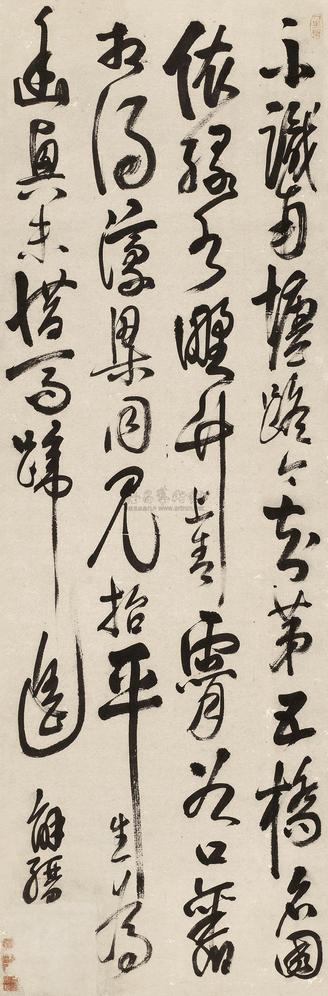 不識南塘路今知第五橋名園
依綠水野竹上青霄谷口舊
相得濠梁同見招平生為
幽興未惜馬蹄遙 解縉